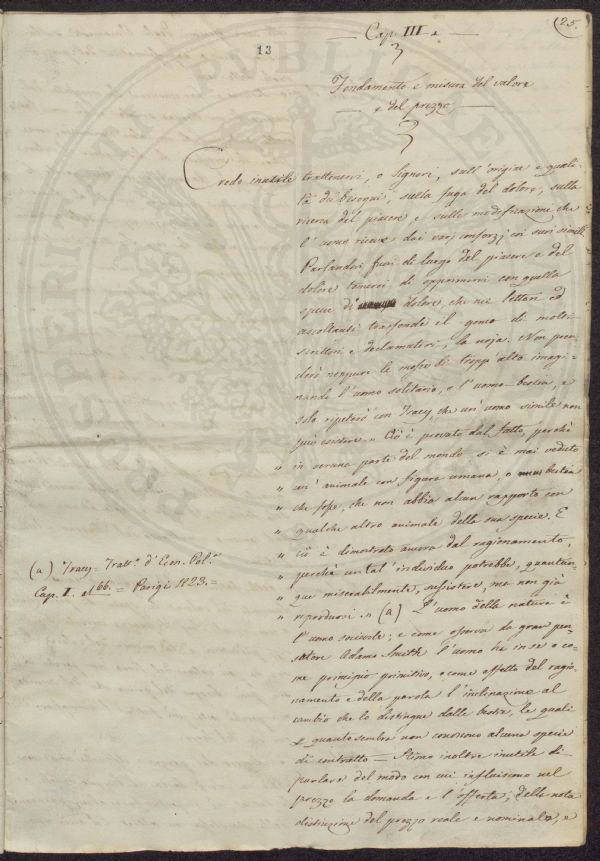 25.
Cap. III.
13
Fondamento e misura del valore
e del prezzo
Credo inutile trattenervi, o Signori, sull'origine e quali-
tà dei bisogni, sulla fuga del dolore, sulla
ricerca del piacere e sulle modificazioni che
l'uomo riceve dai varj consorzj coi suoi simili
Parlandovi fuori di luogo del piacere e del
dolore temerei di opprimervi con quella
specie di dolore, che nei lettori ed
ascoltanti trasfonde il genio di molti
scrittori e declamatori, la noja. Non pren-
derò neppure le mosse di tropp'alto imagi-
nando l'uomo solitario, e l'uomo-bestia, e
solo ripeterò con Tracy, che un'uomo simile non
può esistere „ Ciò è provato dal fatto, perchè
„ in veruna parte del mondo si è mai veduto
„ un'animale con figura umana, o bestia
„ che fosse, che non abbia alcun rapporto con
„ qualche altro animale della sua specie. E
„ ciò è dimostrato ancora dal ragionamento,
„ perchè un tal'individuo potrebbe, quantun-
„ que miserabilmente, sussistere, ma non già
„ riprodursi „ (a) L'uomo della natura è
(a) Tracy = Trat.o d'Econ. Pol.a
Cap. I. al 66. = Parigi 1823. =
l'uomo socievole; e come osserva da gran pen-
satore Adamo Smith l'uomo ha in se o co-
me principio primitivo, o come effetto del ragio-
namento e della parola l'inclinazione al
cambio che lo distingue dalle bestie, le quali
a quanto sembra non conoscono alcuna specie
di contratto — Stimo inoltre inutile di
parlare del modo con cui influiscono nel
prezzo la domanda e l'offerta; della nota
distinzione del prezzo reale e nominale, e